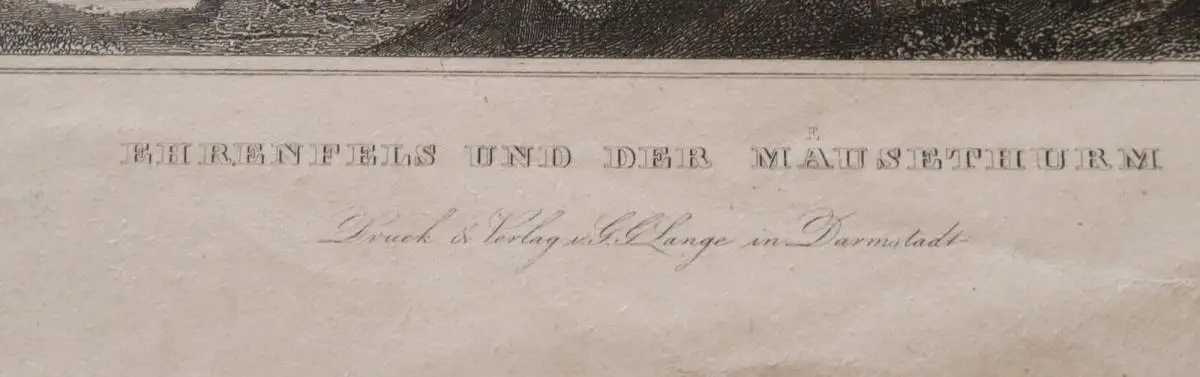 EHRENFELS UND DER MAͤUSETHURM
Druck & Verlag v. G. G. Lange in Darmstadt